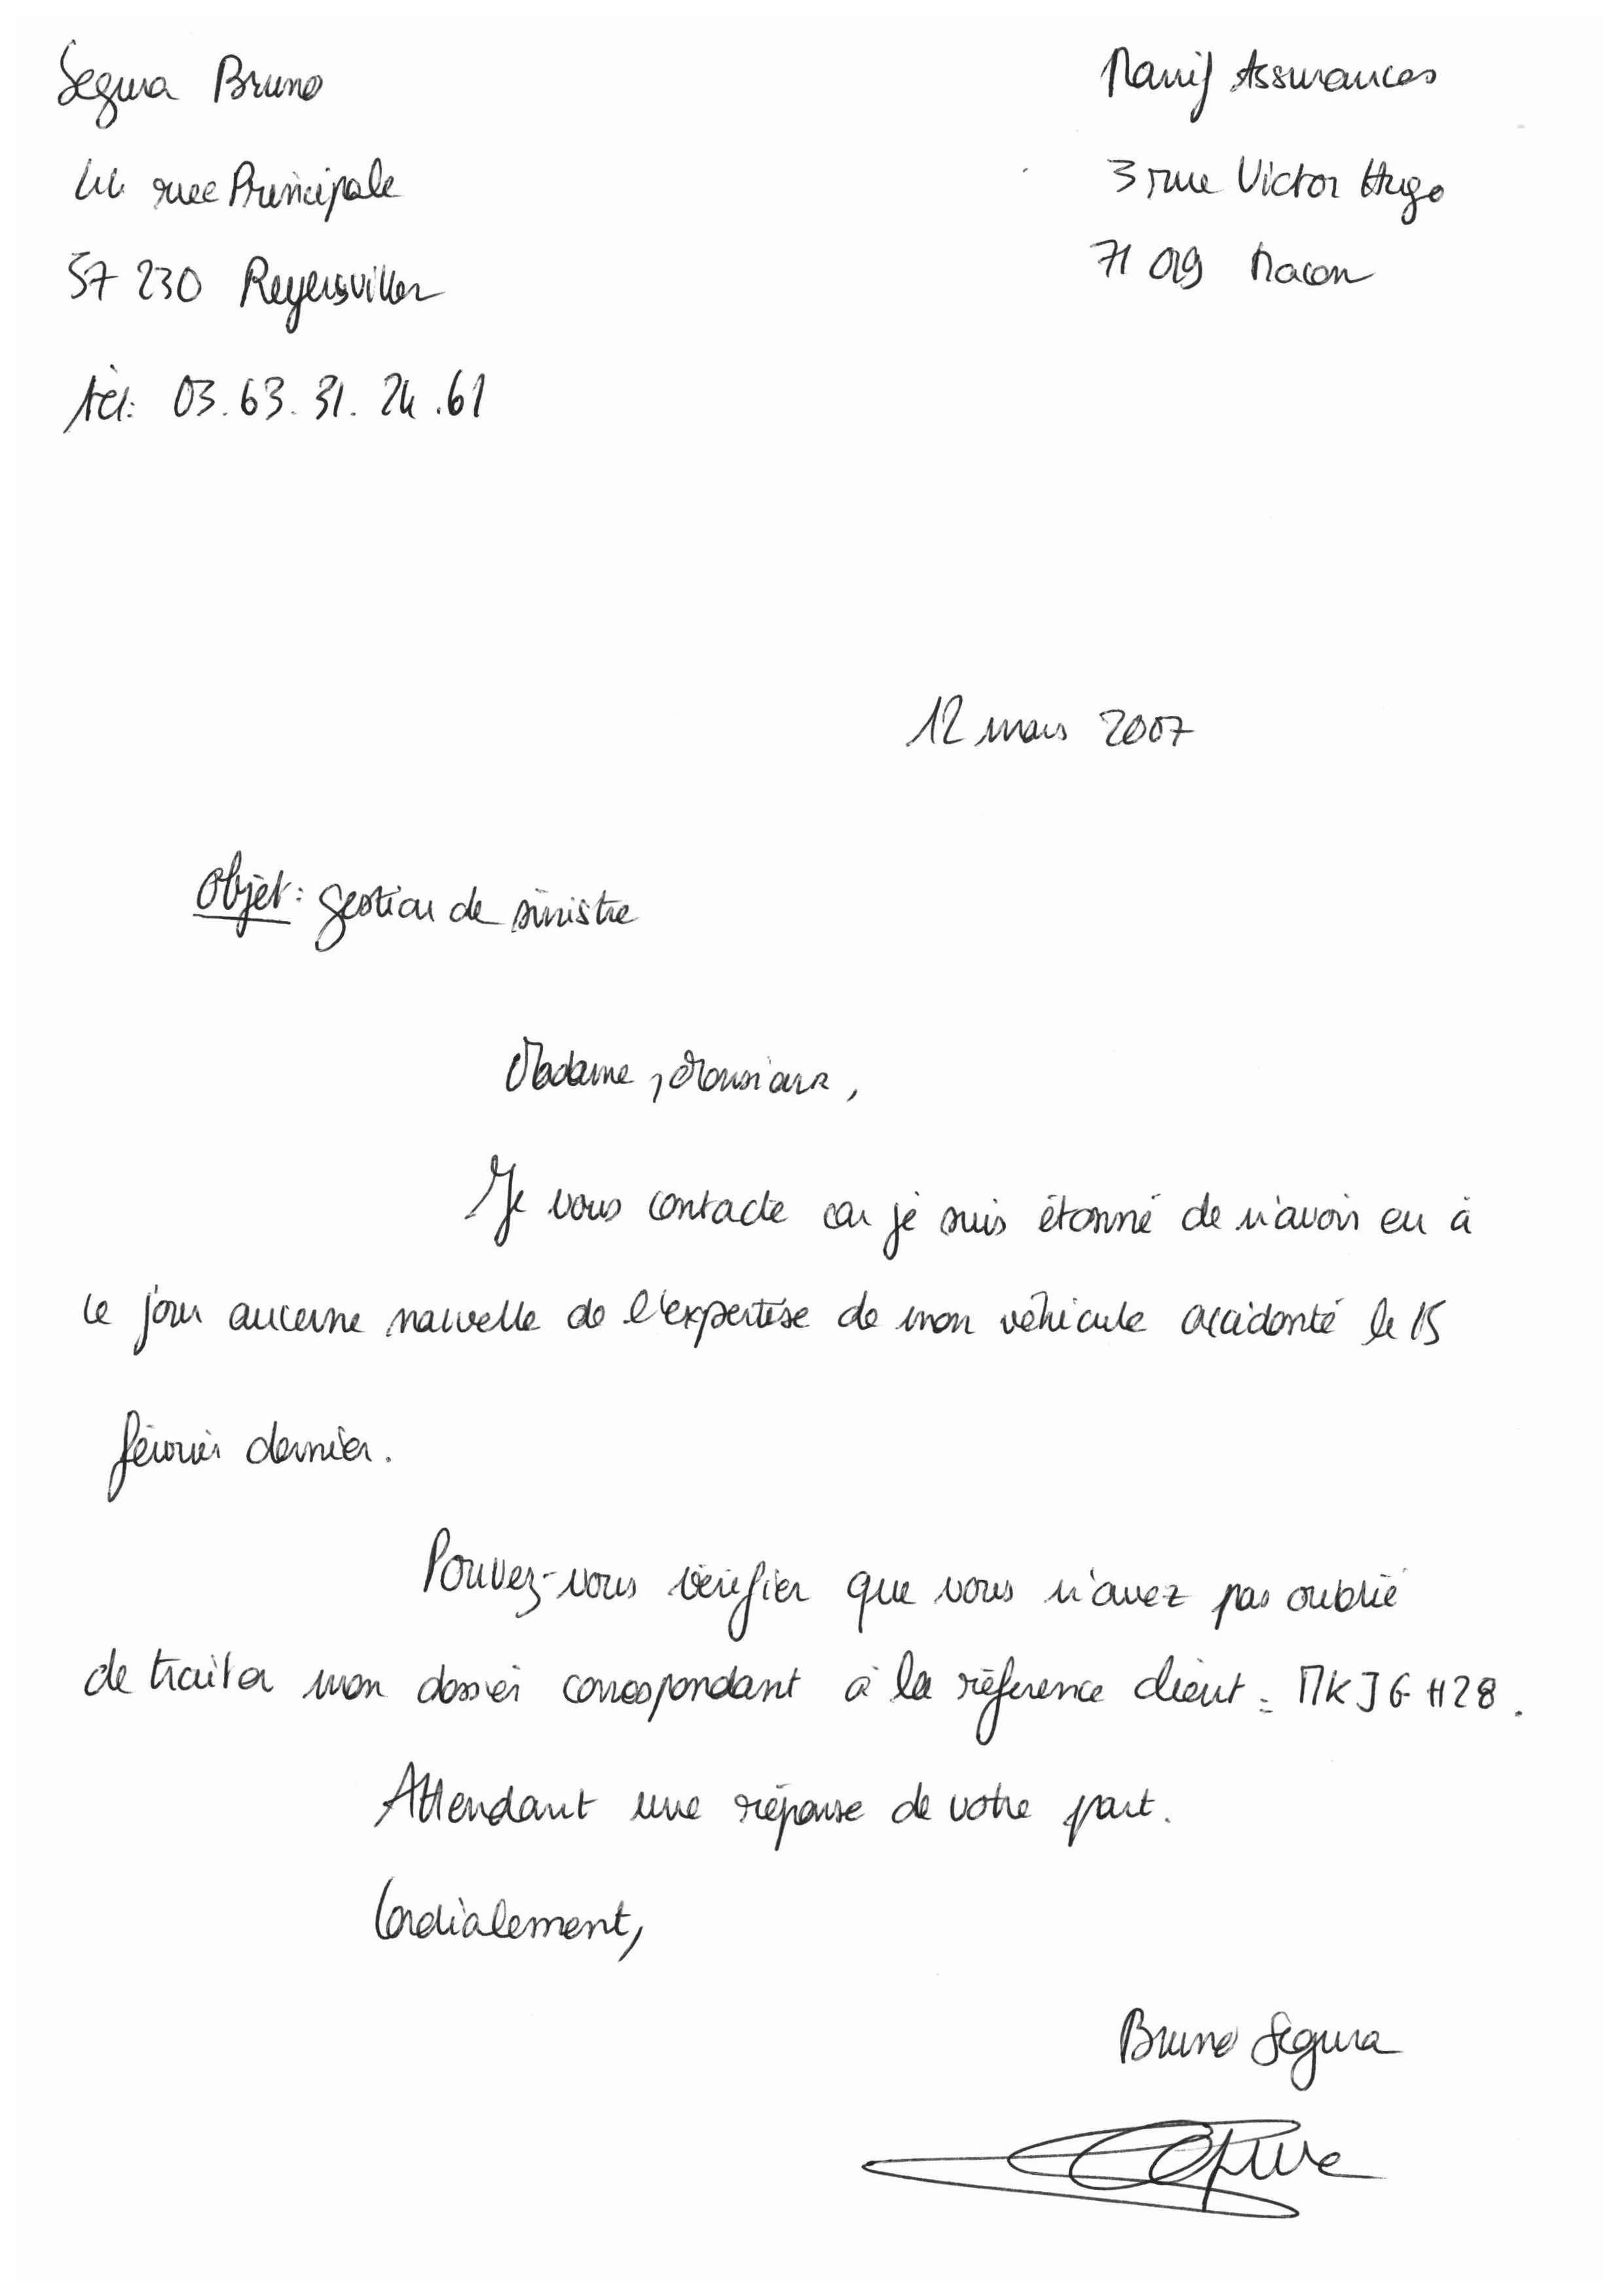 Segura Bruno
44 rue Principale
57 230 Reyersviller
tél: 03.63.31.24.61
Manif Assurances
3 rue Victor Hugo
71 019 Macon
12 mars 2007
Objet: gestion de sinistre
Madame, Monsieur,
Je vous contacte car je suis étonné de n'avoir eu à
ce jour aucune nouvelle de l'expertise de mon véhicule accidenté le 15
février dernier.
Pouvez-vous vérifier que vous n'avez pas oublié
de traiter mon dossier correspondant à la référence client: MKJGH28.
Attendant une réponse de votre part.
Cordialement,
Bruno Segura